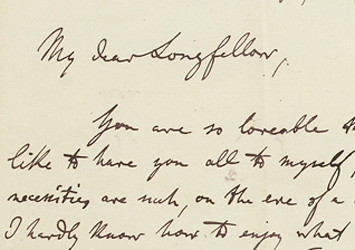 My dear Longfellow,
You are so loveable
like to have you all to myself,
necessities are such, on the eve of a
I hardly know how to enjoy what